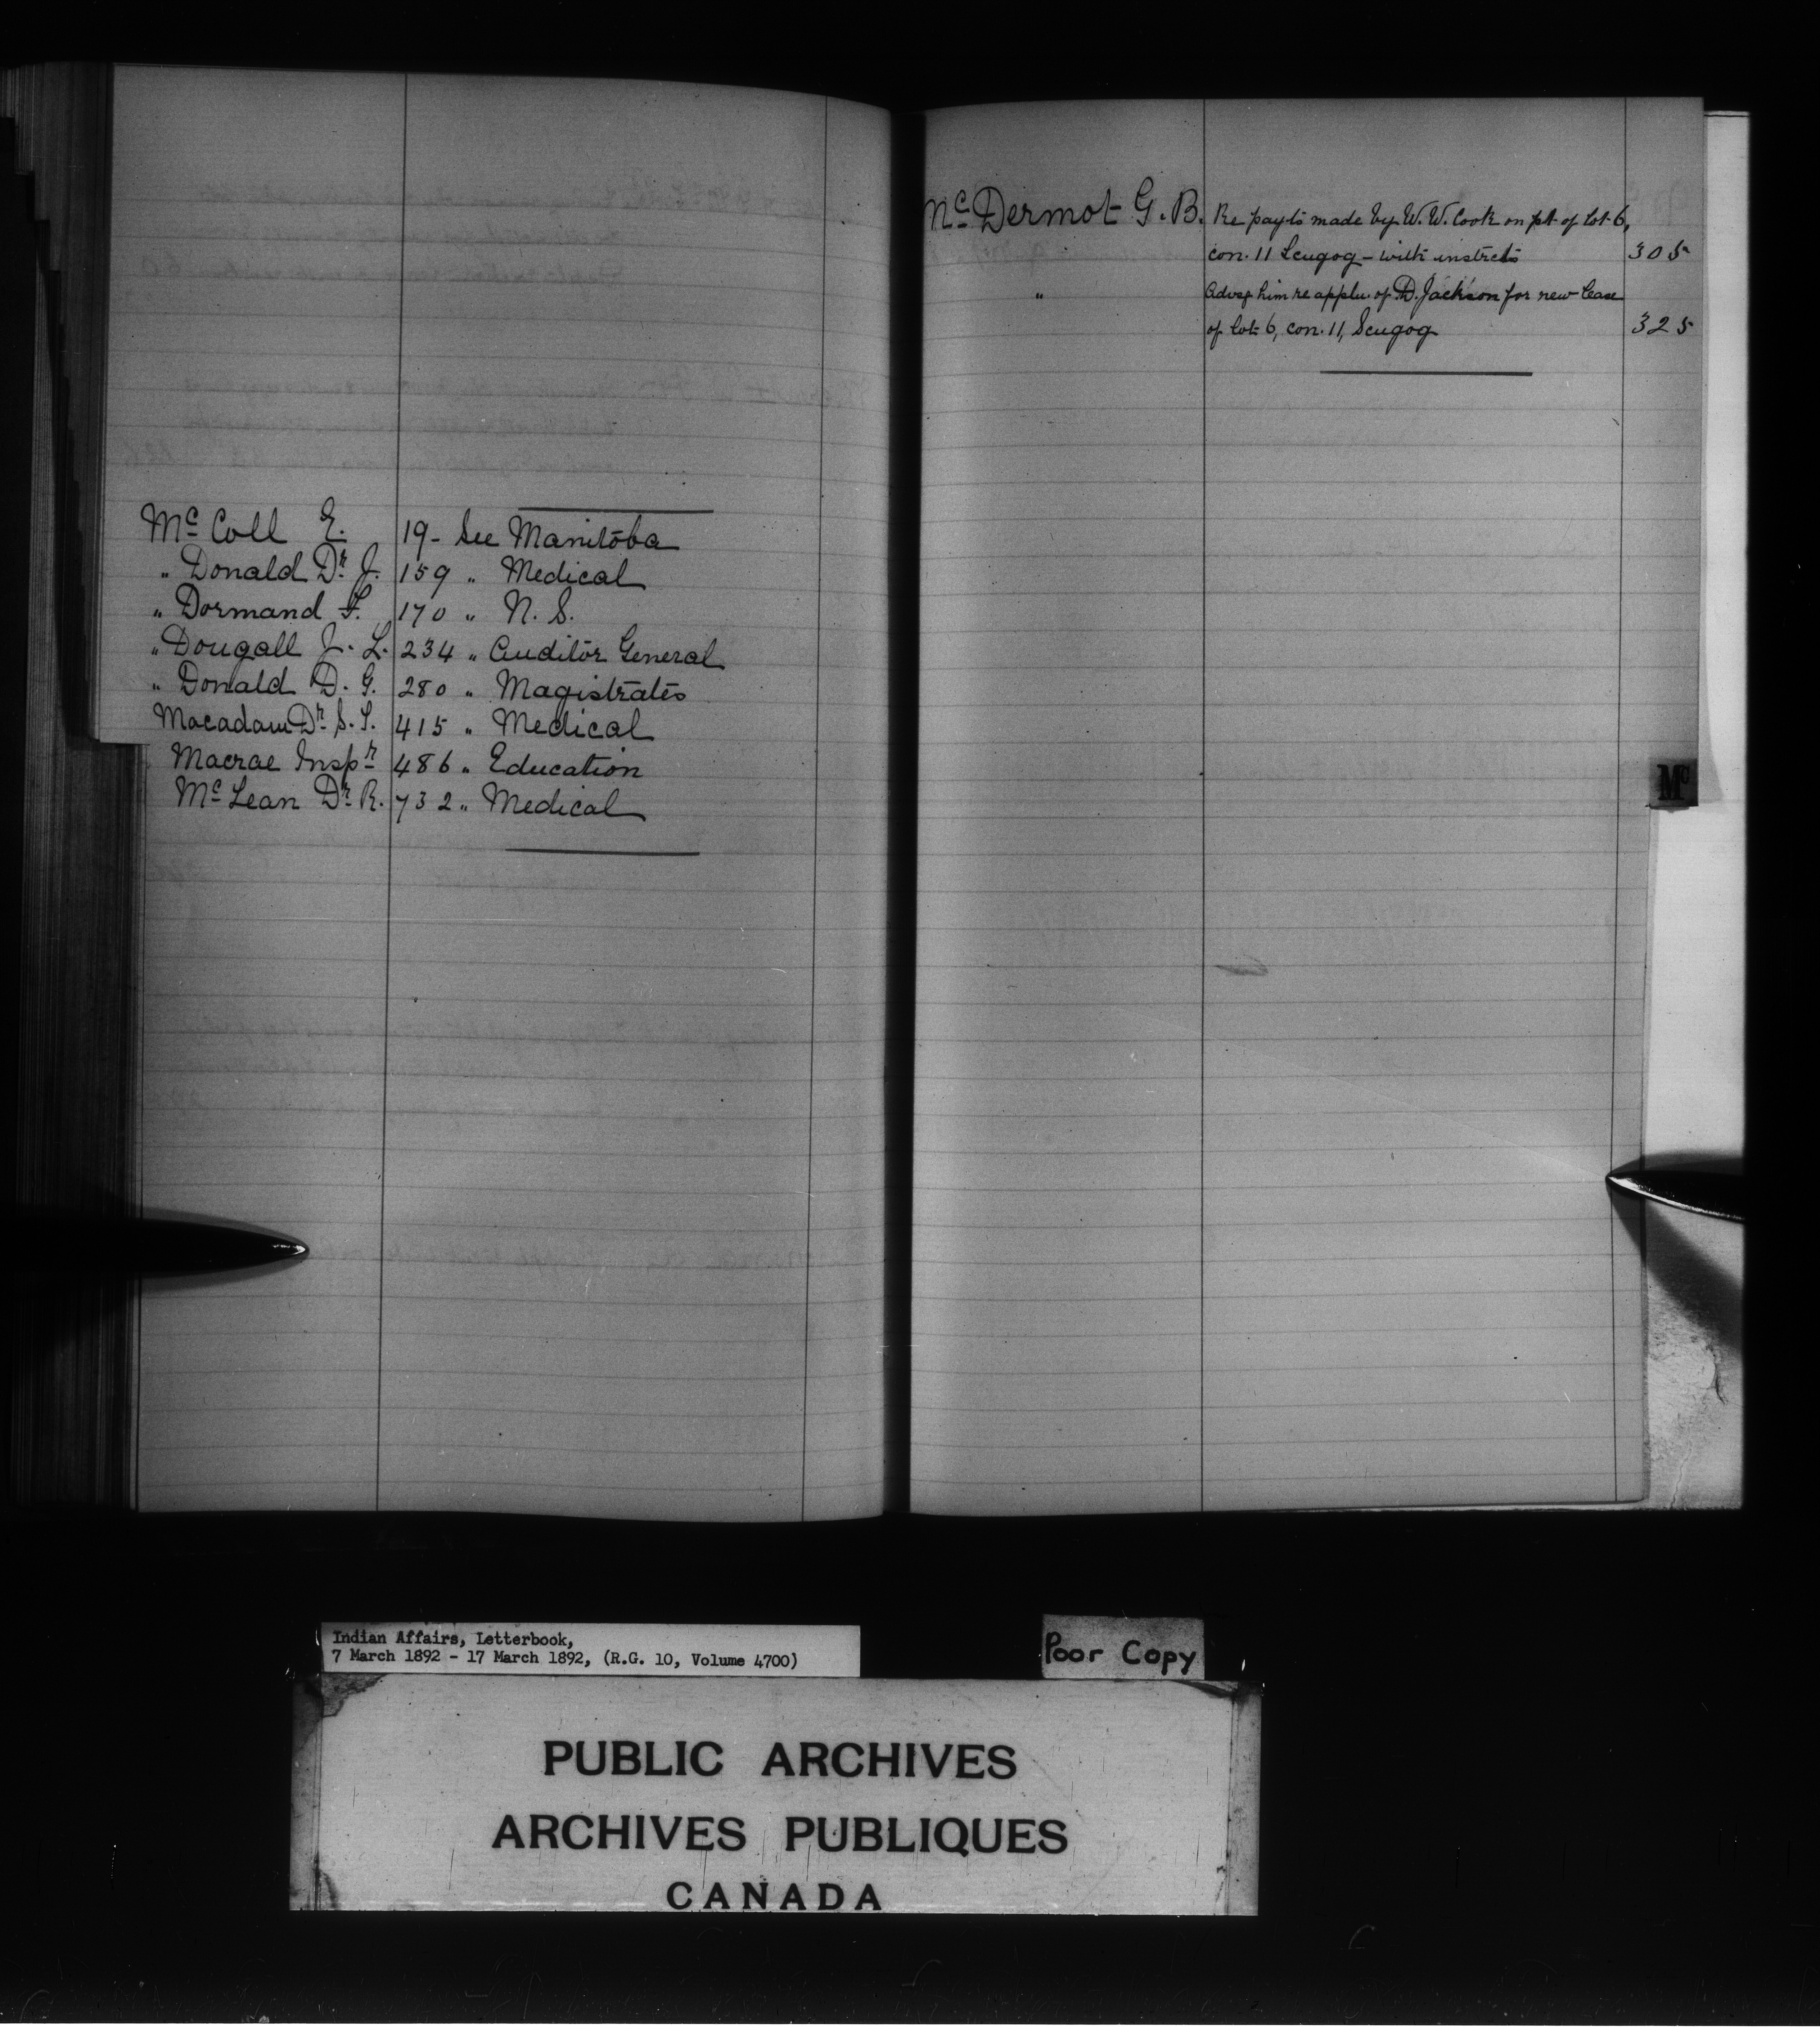 Mc Coll E. 19 - See Manitoba
" Donald Dr. J. 159 " Medical
" Dormand F. 170 " N. S.
" Dougall J. L. 234 " Auditor General
" Donald D. G. 280 " Magistrates
Macadam Dr. S. T. 415 " Medical
Macrae Inspr 486 " Education
Mc Lean Dr. R. 732 " Medical
Mc Dermot G. B. Re payts made by W. W. Cook on pt of lot 6,
con. 11 Scugog - with instrcts 305
" Advsg him re appln. of D. Jackson for new lease
of lot 6, con. 11, Scugog 325
Mc
Indian Affairs, Letterbook,
7 March 1892 - 17 March 1892, (R.G. 10, Volume 4700)
Poor Copy
PUBLIC ARCHIVES
ARCHIVES PUBLIQUES
CANADA